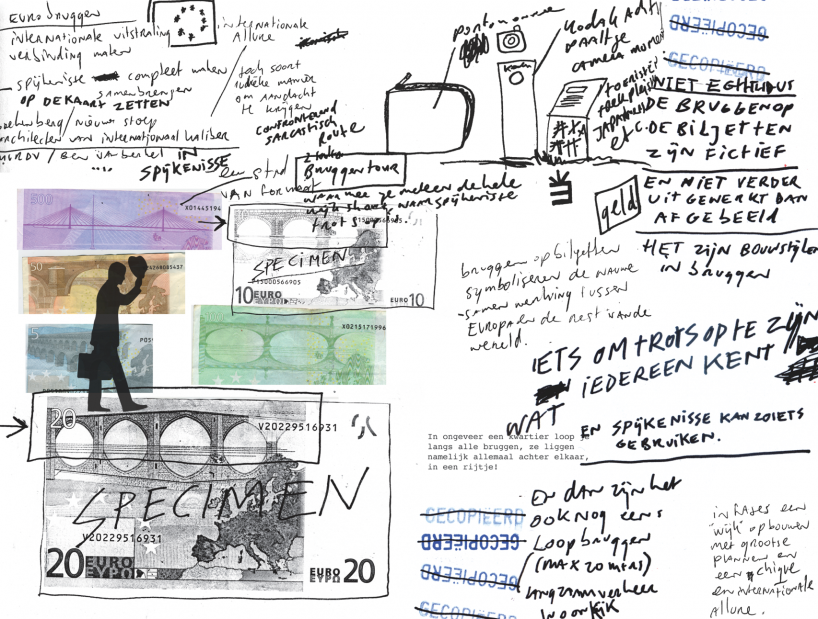 EURO bruggen
internationale uitstraling
verbinding maken
- spijkenisse compleet maken
samenbrengen
OP DE KAART ZETTEN
/ nieuws stoep
architecten van internationaal kaliber
IN
SPIJKENISSE
internationale
Allure
toch soort
ludieke manier
om aandacht
te krijgen
CONFRONTEREND
SARCASTISCH
Route
een stad
VAN formaat
Bruggentour
waarmee je meteen de hele
naar spijkenisse
trots op
X01445194
50
5
SPECIMEN
P15000566905
10 EURO
EURO 10
X0215171996
20
V20229516931
SPECIMEN
V20229516931
20 EURO
EYPΩ
EURO 20
EYPΩ
Kodak
paaltje
camera moment
toeristen
Japanners
etc.
GECOPIEERD
GECOPIEERD
NIET ECHT DUS
DE BRUGGEN OP
DE BILJETTEN
ZIJN FICTIEF
geld
EN NIET VERDER
UITGEWERKT DAN
AFGEBEELD
HET ZIJN BOUWSTIJLEN
IN bruggen
bruggen op biljetten
symboliseren de nauwe
-samenwerking tussen
EUROPA en de rest van de
wereld.
IETS OM TROTS OP TE ZIJN
WAT IEDEREEN KENT
EN SPIJKENISSE KAN ZOIETS
GEBRUIKEN.
In ongeveer een kwartier loop je
langs alle bruggen, ze liggen
namelijk allemaal achter elkaar,
in een rijtje!
GECOPIEERD
GECOPIEERD
GECOPIEERD
GECOPIEERD
En dan zijn het
ook nog eens
Loopbruggen
(MAX 20 mtrs)
langzaam verkeer
in fases een
"wijk" opbouwen
met grootse
plannen en
een chique
en internationale
Allure.